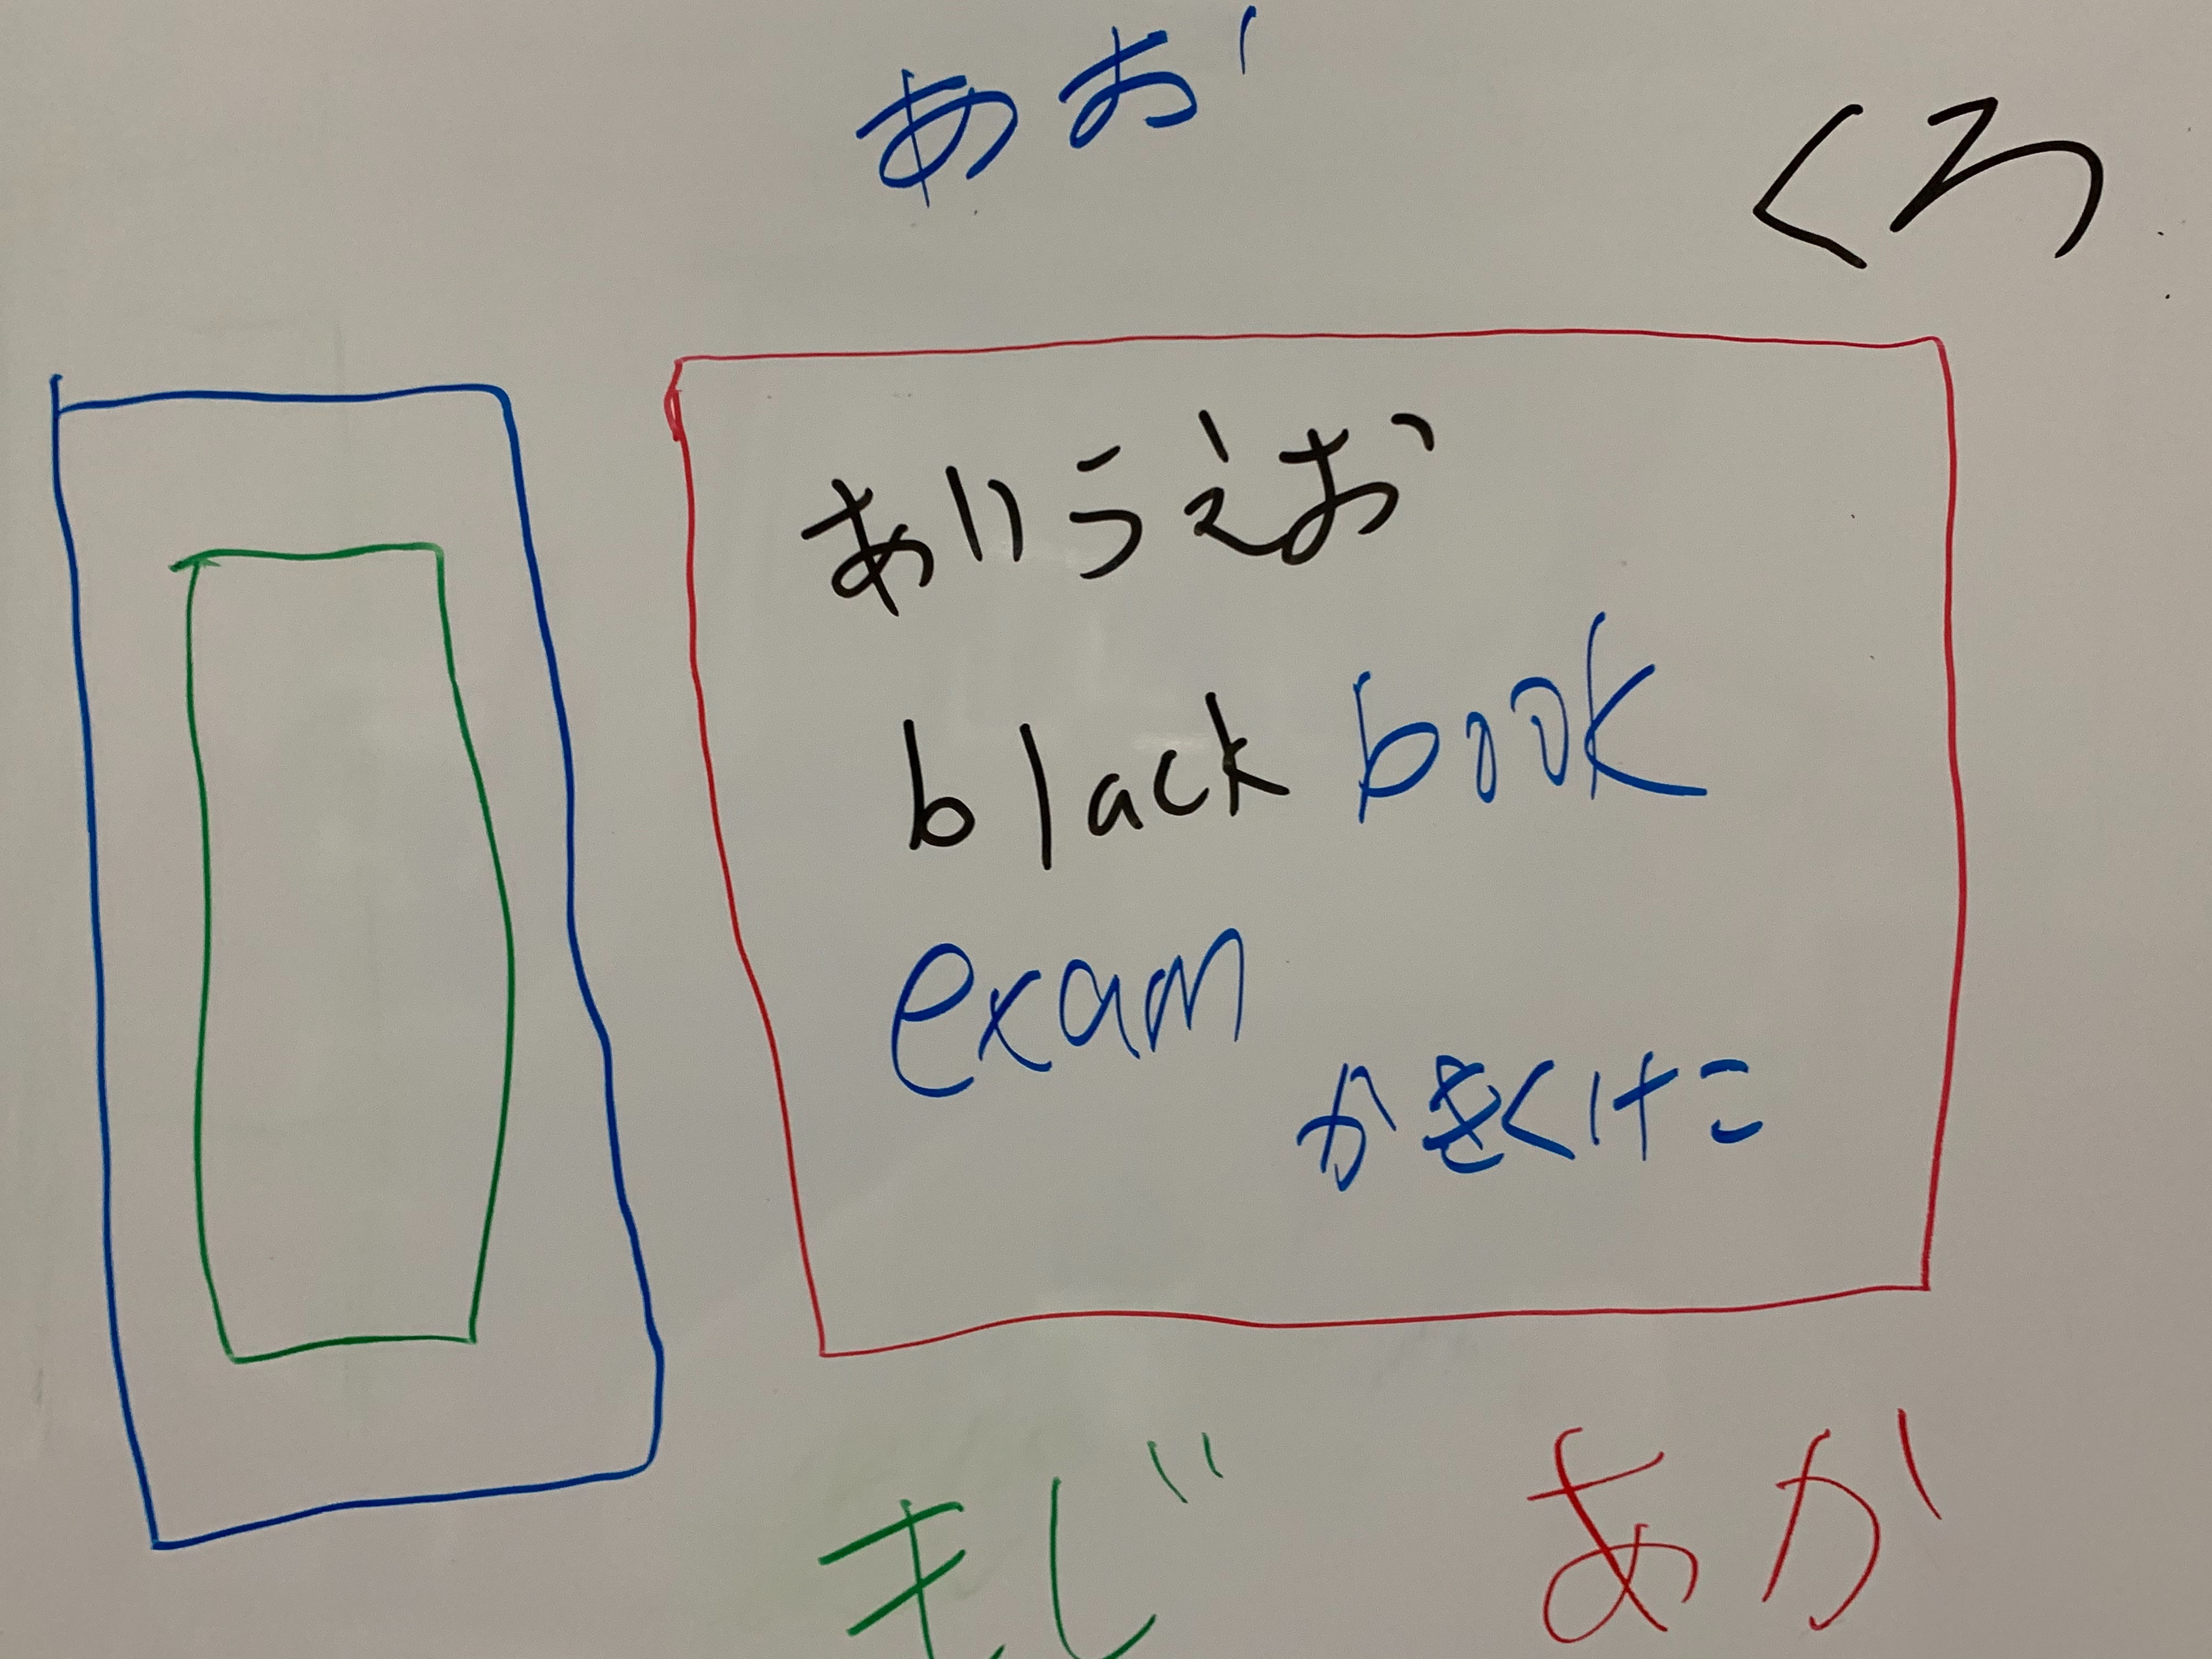 あお
くろ
あいうえお
black book
exam
かきくけこ
もじ
あか